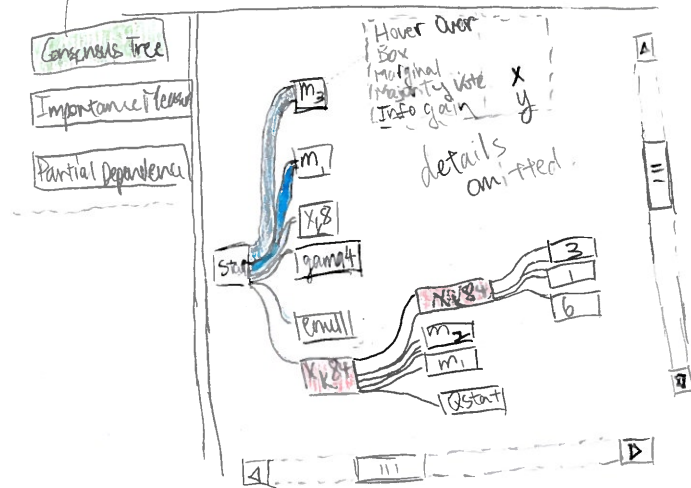 Consensus Tree
Importance Measur
Partial Dependence
Hover Over
Box
Marginal
Majority Vote
Info gain
x
y
details
omitted.
m3
m1
Xk8
gama4
Start
emull
Xk84
m2
m1
Qstat
3
1
6